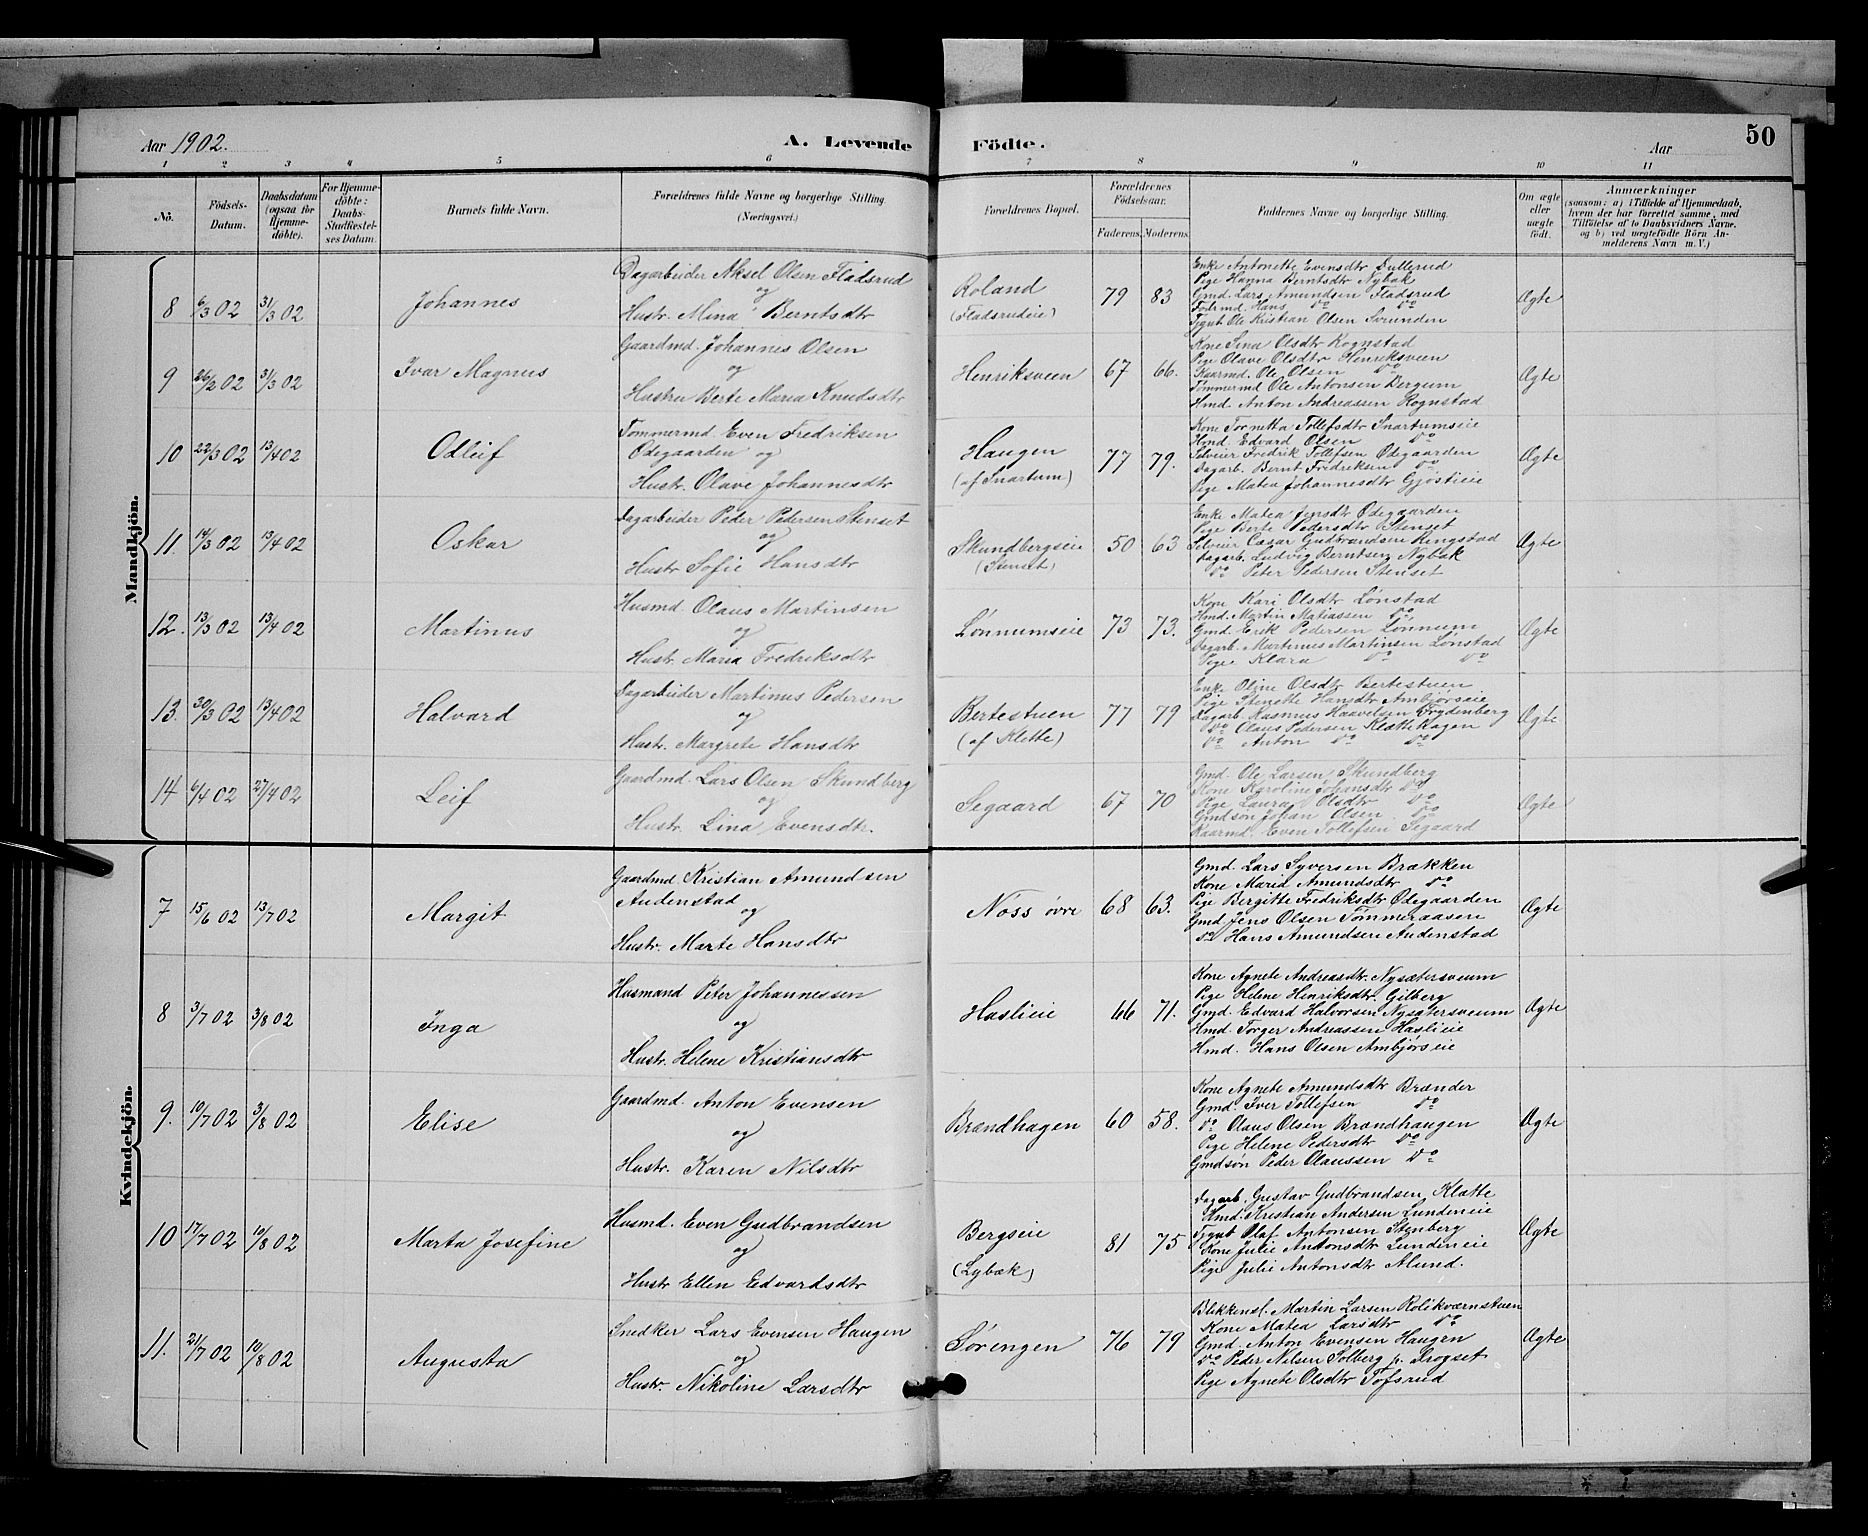 Aar 1902.
A. Levende Födte.
Aar
50
1 2 3 4 5 6 7 8 9 10 11
No.
Födsels-Datum.
Daabsdatum (ogsaa for Hjemme-döbte).
For Hjemme-döbte: Daabs-Stadfæstel-ses Datum.
Barnets fulde Navn.
Forældrenes fulde Navne og borgerlige Stilling. (Næringsvei.)
Forældrenes Bopæl.
Forældrenes Födselsaar.
Faderens. Moderens.
Faddernes Navne og borgerlige Stilling.
Om ægte eller uægte födt.
Anmærkninger
(saasom: a) i Tilfælde af Hjemmedaab, hvem der har forrettet samme, med Tilföielse af to Daabsvidners Navne, og b) ved uægtefödte Börn An-melderens Navn m. V.)
Mandkjön.
8 6/3 02 31/3 02 Johannes
Dagarbeider Aksel Olsen Fladsrud
og
Hustr. Mina Berntsdtr
Roland
(Fladsrudeie)
79 83
Enke Antonette Evensdtr Dullerud
Pige Hanna Berntsdtr Nybak
Gmd. Lars Amundsen Fladsrud
Födrmd. Hans do do
Tgut Ole Kristian Olsen Svrunden
Ægte
9 26/2 02 31/3 02 Ivar Magnus
Gaardmd. Johannes Olsen
og
Hustru Berte Maria Knudsdtr
Henriksveen
67 66.
Kone Sina Olsdtr Rognstad
Pige Olave Olsdtr Henriksveen
Kaarmd. Ole Olsen do
Tömmermd Ole Antonsen Bergum
Hmd. Anton Andreassen Rognstad
Ægte
10 22/3 02 13/4 02 Odleif
Tømmermd. Even Fredriksen
Ødegaarden og
Hustr. Olave Johannesdtr
Haugen
(af Snartum)
77 79.
Kone Tornetta Tollefsdtr Snartumseie
Hmd. Edvard Olsen do
Selveier Fredrik Tollefsen Ødegaarden
Dagarb. Bernt Fridriksen do
Pige Matea Johannesdtr Gjöstieie
Ægte
11 14/3 02 13/4 02 Oskar
Dagarbeider Peder Pedersen Stenset
og
Hustr Sofie Hansdtr
Skundbergseie
(Stenset)
50 63
Enke Matea Jensdtr Ødegaarden
Pige Berte Pedersdtr Stenset
Selveier Cæsar Gudbrandsen Ringstad
Dagarb. Ludvig Berntsen Nybak
do Peter Pedersen Stenset
Ægte
12. 13/3 02 13/4 02 Martinus
Husmd. Olaus Martinsen
og
Hustr. Maria Fredriksdtr
Lönnumseie
73 73.
Kone Kari Olsdtr Lönstad
Hmd. Martin Matiassen do
Gmd. Erik Pedersen Lönnum
Dagarb. Martinus Martinsen Lönstad
Pige Klara do do
Ægte
13. 30/3 02 13/4 02 Halvard
Dagarbeider Martinus Pedersen
og
Hustr. Margrete Hansdtr
Bertestuen
(af Klette)
77 79
Enke Oline Olsdtr Bertestuen
Pige Stenette Hansdtr Ambjörseie
Dagarb. Rasmus Haavelsen Frydenberg
do Olaus Pedersen Klættehagen
do Anton do do
Ægte
14 6/4 02 27/4 02 Leif
Gaardmd. Lars Olsen Skundberg
og
Hustr. Lina Evensdtr.
Segaard
67 70
Gmd. Ole Larsen Skundberg
Kone Karoline Johansdtr do
Pige Laura Olsdtr do
Gmdsön Johan Olsen do
Kaarmd. Even Tollefsen Segaard
Ægte
Kvindekjön.
7 15/6 02 13/7 02 Margit
Gaardmd Kristian Amundsen
Audenstad
og
Hustr. Marte Hansdtr
Nöss övre
68 63.
Gmd. Lars Syversen Brækken
Kone Marie Amundsdtr do
Pige Bergitte Fredriksdtr Ødegaarden
Gmd Jens Olsen Tömmeraasen
do Hans Amundsen Audenstad
Ægte
8 3/7 02 3/8 02 Inga
Husmand Peter Johannessen
og
Hustr. Helene Kristiansdtr
Haslieie
66 71.
Kone Agnete Andreasdtr. Nysætersveum
Pige Helene Henriksdtr. Gilberg
Gmd. Edvard Halvorsen Nysætersveum
Hmd. Torger Andreassen Haslieie
Hmd. Hans Olsen Ambjörseie
Ægte
9. 10/7 02 3/8 02 Elise
Gaardmd. Anton Evensen
og
Hustr. Karen Nilsdtr
Brændhagen
60 58.
Kone Agnete Amundsdtr Brænder
Gmd. Iver Tollefsen do
do Olaus Olsen Brændhaugen
Pige Helene Pedersdtr do
Gmdsön Peder Olaussen do
Ægte
10 17/7 02 10/8 02 Marta Josefine
Husmd. Even Gudbrandsen
og
Hustr Ellen Edvardsdtr
Bergseie
(Lybæk)
81 75
Dagarb. Gustav Gudbrandsen Klætte
Hmd. Kristian Andersen Lundeneie
Tgut Olaf Antonsen Stenberg
Kone Julie Antonsdtr Lundeneie
Pige Julie Antonsdtr Alund.
Ægte
11. 21/7 02 10/8 02 Augusta
Snedker Lars Evensen Haugen
og
Hustr. Nikoline Larsdtr
Sörengen
76 79
Blikkensl. Martin Larsen Rolikværnstuen
Kone Matea Larsdtr do
Gmd. Anton Evensen Haugen
do Peder Nilsen Solberg p. Drogset
Pige Agnete Olsdtr Tofsrud
Ægte